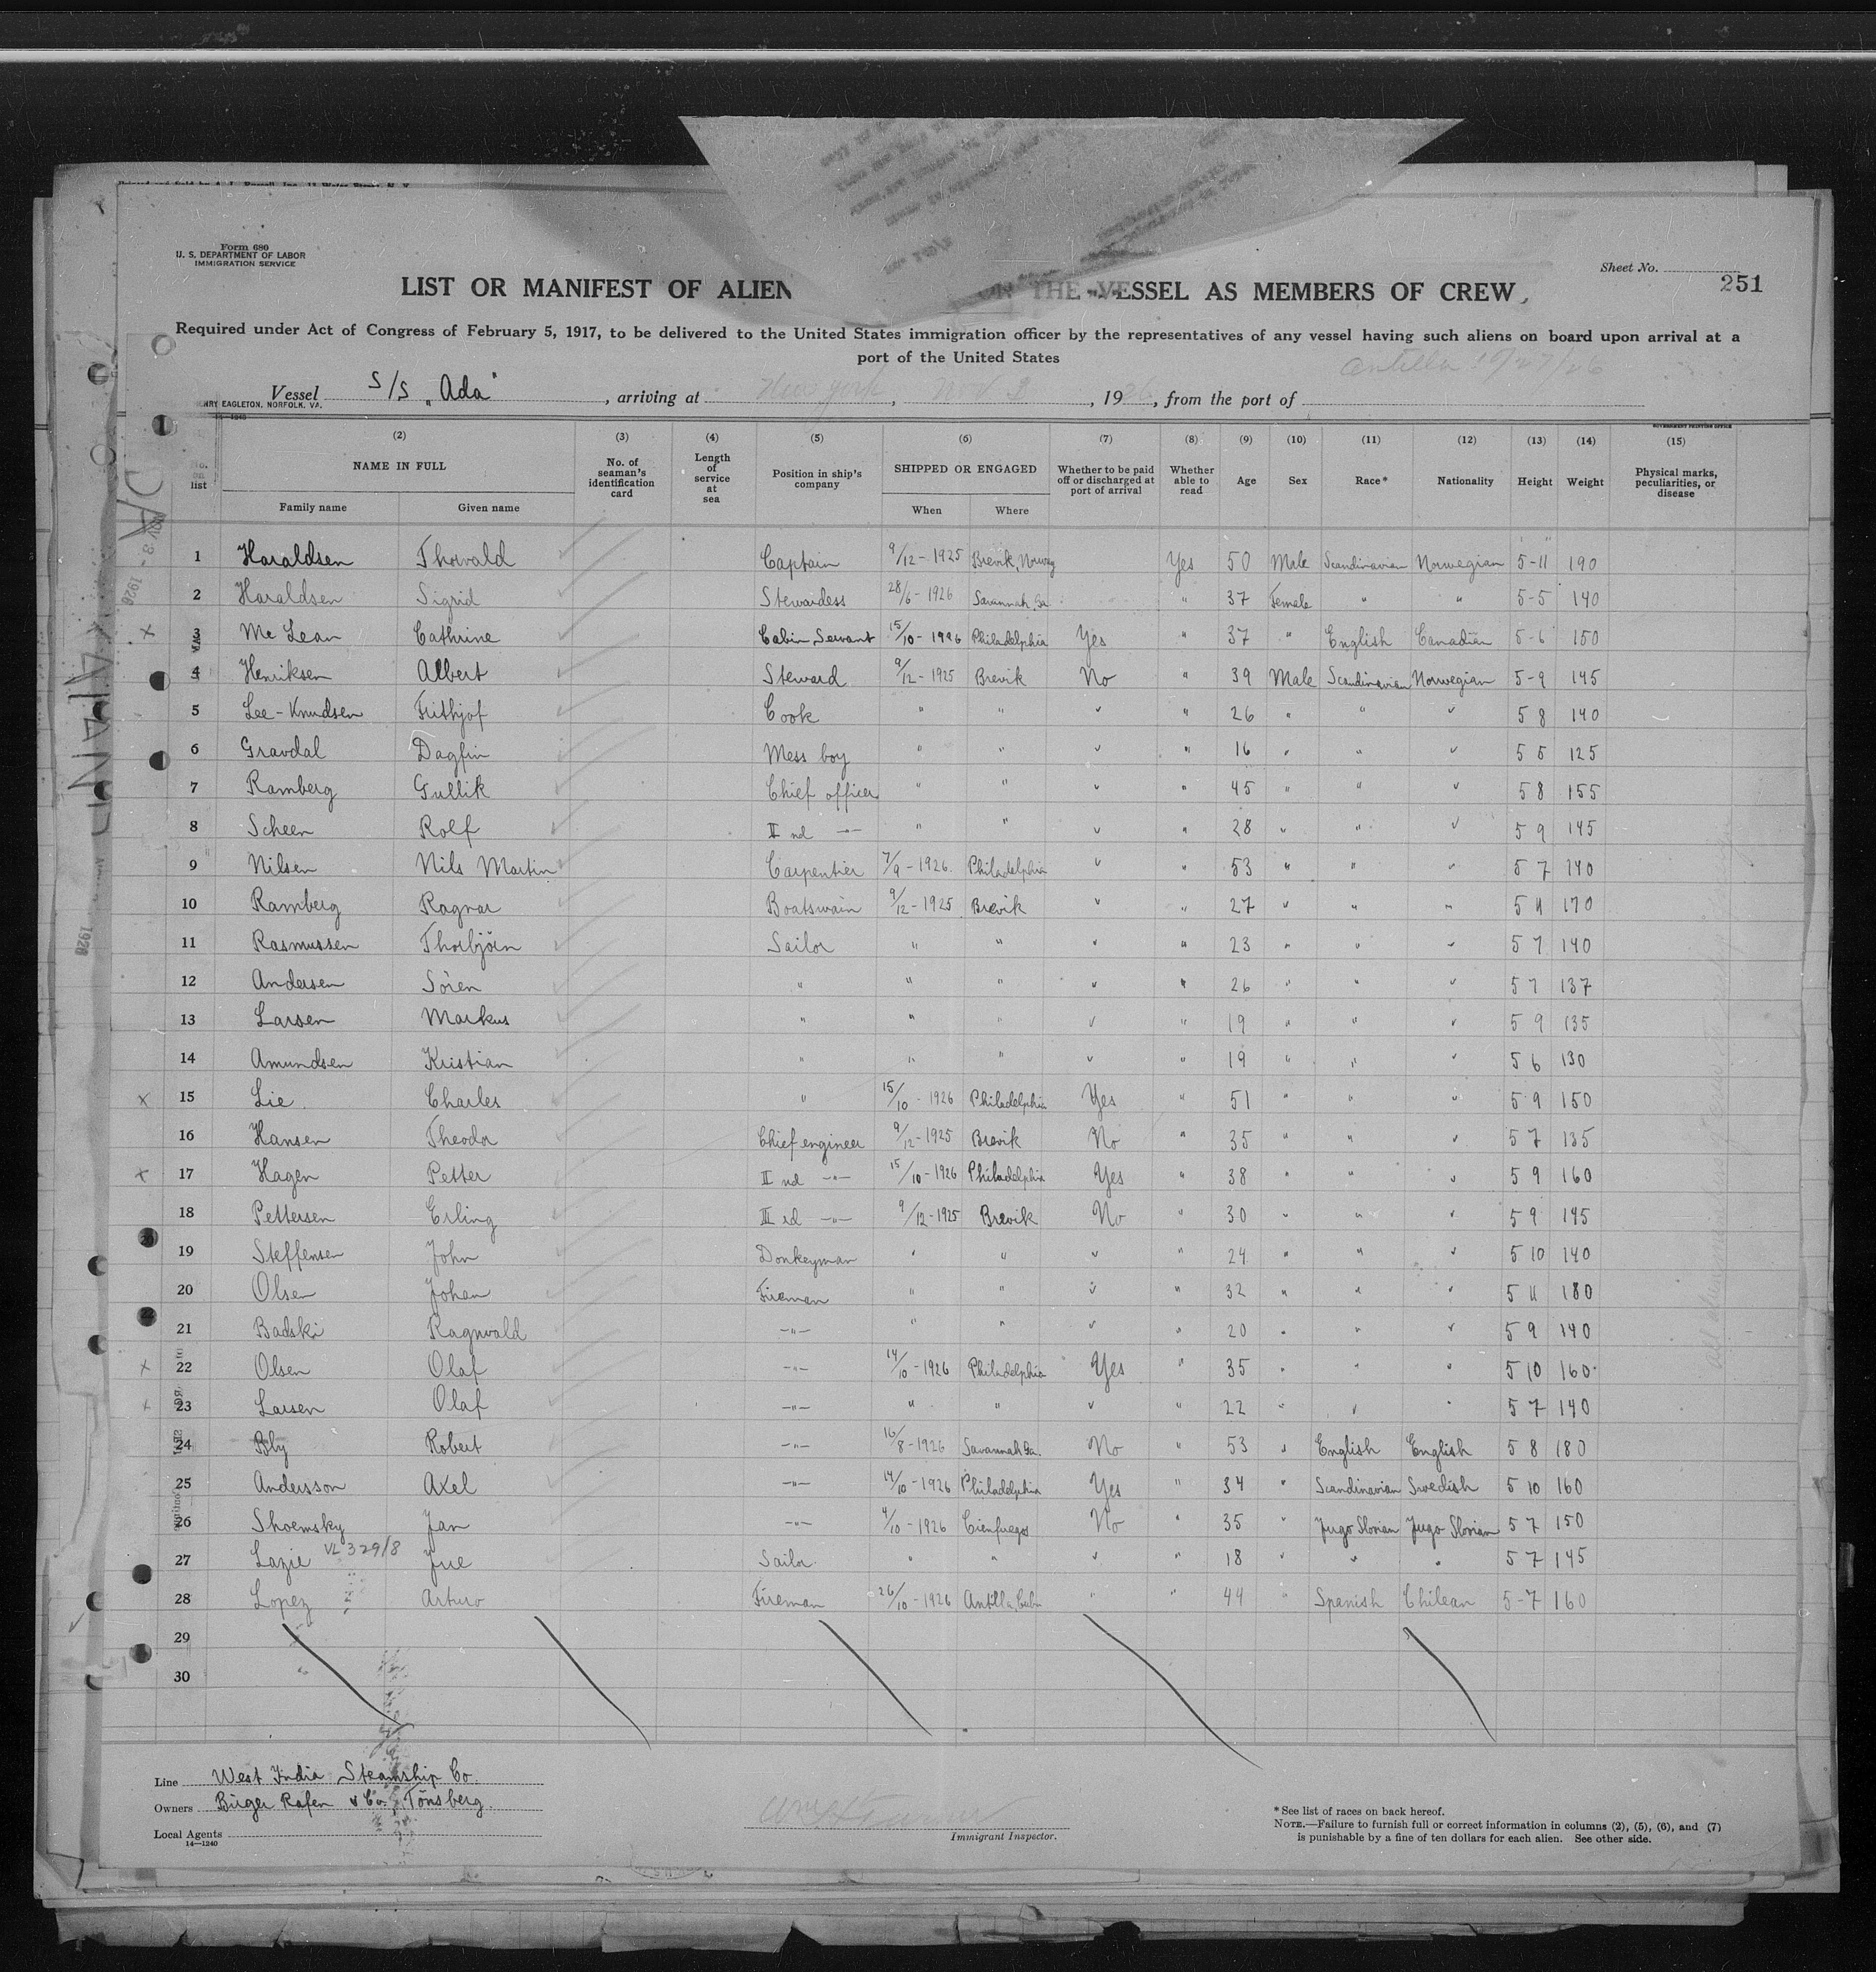 Form 680
U. S. DEPARTMENT OF LABOR
IMMIGRATION SERVICE
Sheet No.
251
LIST OR MANIFEST OF ALIEN ON THE VESSEL AS MEMBERS OF CREW
Required under Act of Congress of February 5, 1917, to be delivered to the United States immigration officer by the representatives of any vessel having such aliens on board upon arrival at a
port of the United States
Antilla 10/27/26
Vessel S/S "Ada", arriving at New York, Nov 3, 1926, from the port of
EAGLETON, NORFOLK, VA.
GOVERNMENT PRINTING OFFICE
(2) (3) (4) (5) (6) (7) (8) (9) (10) (11) (12) (13) (14) (15)
No. on list NAME IN FULL Family name Given name No. of seaman's identification card Length of service at sea Position in ship's company SHIPPED OR ENGAGED When Where Whether to be paid off or discharged at port of arrival Whether able to read Age Sex Race* Nationality Height Weight Physical marks, peculiarities, or disease
1 Haraldsen Thorvald Captain 9/12-1925 Brevik, Norway Yes 50 Male Scandinavian Norwegian 5-11 190
2 Haraldsen Sigrid Stewardess 28/6-1926 Savannah, Ga. " 37 Female " " 5-5 140
x 3 Mc Lean Cathrine Cabin Servant 15/10-1926 Philadelphia Yes " 37 " English Canadian 5-6 150
4 Henriksen Albert Steward 9/12-1925 Brevik No " 39 Male Scandinavian Norwegian 5-9 145
5 Lee-Knudsen Frithjof Cook " " " " 26 " " " 5 8 140
6 Gravdal Dagfin Mess boy " " " " 16 " " " 5 5 125
7 Ramberg Gullik Chief officer " " " " 45 " " " 5 8 155
8 Scheen Rolf II nd -"- " " " " 28 " " " 5 9 145
9 Nilsen Nils Martin Carpentier 7/9-1926 Philadelphia " " 53 " " " 5 7 140
10 Ramberg Ragnar Boatswain 9/12-1925 Brevik " " 27 " " " 5 11 170
11 Rasmussen Thorbjörn Sailor " " " " 23 " " " 5 7 140
12 Andersen Sören " " " " " 26 " " " 5 7 137
13 Larsen Markus " " " " " 19 " " " 5 9 135
14 Amundsen Kristian " " " " " 19 " " " 5 6 130
x 15 Lie Charles " 15/10-1926 Philadelphia Yes " 51 " " " 5 9 150
16 Hansen Theodor Chief engineer 9/12-1925 Brevik No " 35 " " " 5 7 135
x 17 Hagen Petter II nd -"- 15/10-1926 Philadelphia Yes " 38 " " " 5 9 160
18 Pettersen Erling III rd -"- 9/12-1925 Brevik No " 30 " " " 5 9 145
19 Steffensen John Donkeyman " " " " 24 " " " 5 10 140
20 Olsen Johan Fireman " " " " 32 " " " 5 11 180
21 Badski Ragnvald -"- " " " " 20 " " " 5 9 140
x 22 Olsen Olaf -"- 14/10-1926 Philadelphia Yes " 35 " " " 5 10 160
x 23 Larsen Olaf -"- " " " " 22 " " " 5 7 140
24 Bly Robert -"- 16/8-1926 Savannah Ga. No " 53 " English English 5 8 180
25 Andersson Axel -"- 14/10-1926 Philadelphia Yes " 34 " Scandinavian Swedish 5 10 160
26 Shoemsky Jan -"- 4/10-1926 Cienfuegos No " 35 " Jugo Slovian Jugo Slovian 5 7 150
27 Lazic VL 329/8 Jue Sailor " " " " 18 " " " 5 7 145
28 Lopez Arturo Fireman 26/10-1926 Antilla, Cuba " " 44 " Spanish Chilean 5-7 160
29
30
Line West India Steamship Co.
Owners Birger Rafen & Co., Tönsberg.
Local Agents
14—1240
Immigrant Inspector.
*See list of races on back hereof.
NOTE.—Failure to furnish full or correct information in columns (2), (5), (6), and (7)
is punishable by a fine of ten dollars for each alien. See other side.